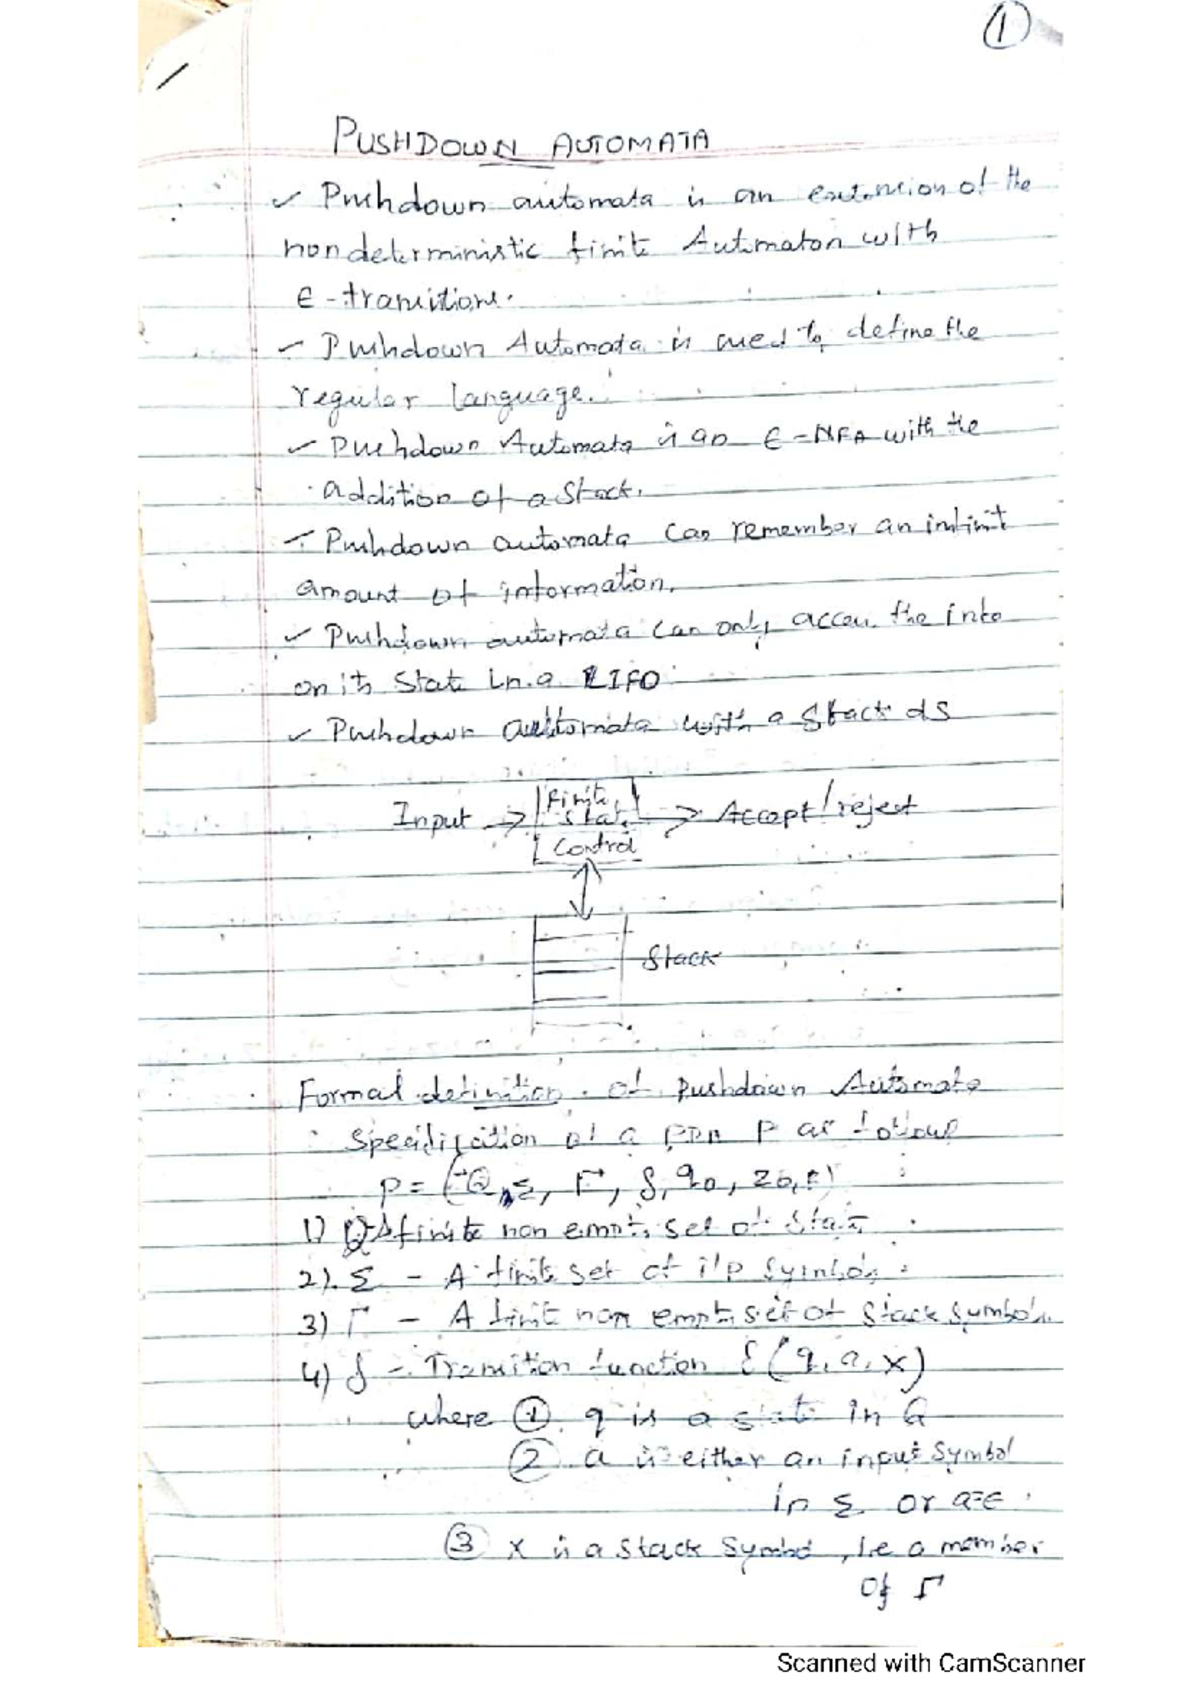 1
PUSHDOWN AUTOMATA
✓ Pushdown automata is an extension of the
nondeterministic finite Automaton with
ϵ-transitions.
- Pushdown Automata is used to define the
regular language.
✓ Pushdown Automata is an ϵ-NFA with the
addition of a stack.
- Pushdown automata can remember an infinit
amount of information.
✓ Pushdown automata can only access the info
on its state in a LIFO
✓ Pushdown automata with a stack ds
Input → Finite → Accept/reject
State
Control
Stack
Formal definition of pushdown Automata
Specification of a PDA P as follows
P = (Q, Σ, Γ, δ, q0, z0, F)
1) Q-A finite non empty set of state
2) Σ - A finite set of i/p symbols.
3) Γ - A finit non empty set of stack symbols.
4) δ - Transition function δ(q, a, x)
where ① q is a state in Q
② a is either an input symbol
in Σ or a=ϵ.
③ x is a stack symbol, i.e a member
of Γ
Scanned with CamScanner